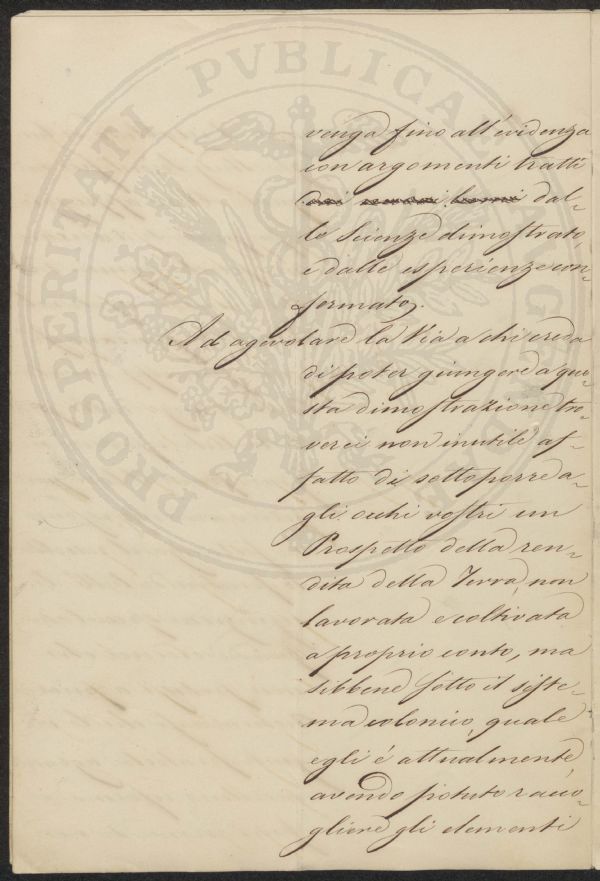 PROSPERITATI PVBLICAE AVGENDAE
venga fino all'evidenza
con argomenti tratti
dal-
le Scienze dimostrato,
e dalle esperienze con-
fermato.
Ad agevolare la Via a chi creda
di poter giungere a que-
sta dimostrazione tro-
verei non inutile af-
fatto di sottoporre a-
gli occhi vostri un
Prospetto della ren-
dita della Terra, non
lavorata e coltivata
a proprio conto, ma
sibbene sotto il siste-
ma colonico, quale
egli é attualmente,
avendo potuto racco-
gliere gli elementi